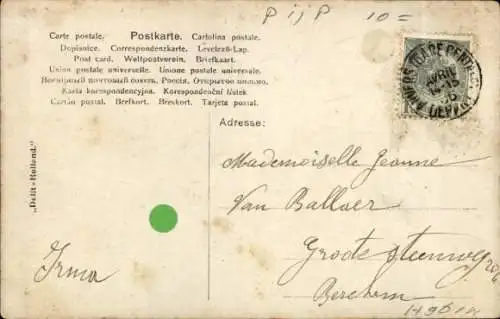 PijP 10=
Carte postale. Postkarte. Cartolina postale.
Dopisnice. Correspondenzkarte. Levelező-Lap.
Post card. Weltpostverein. Briefkaart.
Union postale universelle. Unione postale universale.
Всемірный почтовый союзъ. Россія. Открытое письмо.
Karta korespondencyjna. Korespondenční lístek.
Cartão postal. Brefkort. Brevkort. Tarjeta postal.
Adresse:
Mademoiselle Jeanne
Van Ballaer
Groote steenweg 20/6
Berchem
Irma
„Delft-Holland."
ANVERS (PLACE
DEPART
AVRIL